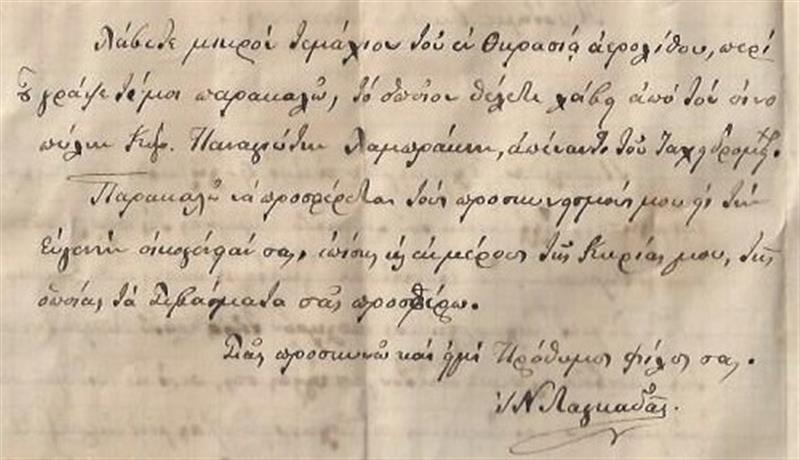 Λάβετε μικρόν τεμάχιον τοῦ ἐν Θηρασίᾳ ἀερολίθου, περὶ
οὗ γράψετέ μοι παρακαλῶ, τὸ ὁποῖον θέλετε λάβῃ ἀπὸ τὸν οἰνο
πώλην Κύρ. Παναγιώτην Λαμπράκην, ἀπέναντι τοῦ Ταχυδρομ.
Παρακαλῶ νὰ προσφέρεται τοὺς προσκυνησμούς μου εἰς τὴν
Εὐγενῆ οἰκογένειάν σας, ἐπίσης ἐκ μέρους τῆς Κυρίας μου, τῆς
ὁποίας τὰ Σεβάσματα σᾶς προσφέρω.
Σᾶς προσκυνῶ καὶ εἰμὶ Πρόθυμος φίλος σας.
Ν Λαγκαδᾶς.